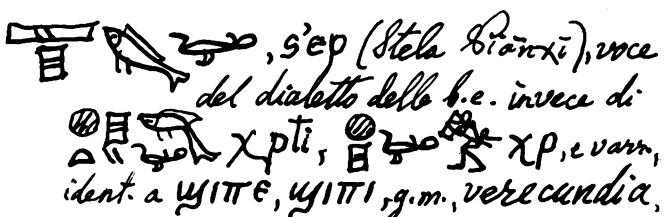 , s'ep (Stela Piānχī), voce
del dialetto della b.e. invece di
χpti, χp, e varr.,
ident. a ϣⲓⲡⲉ, ϣⲓⲡⲓ, g.m., verecundia,